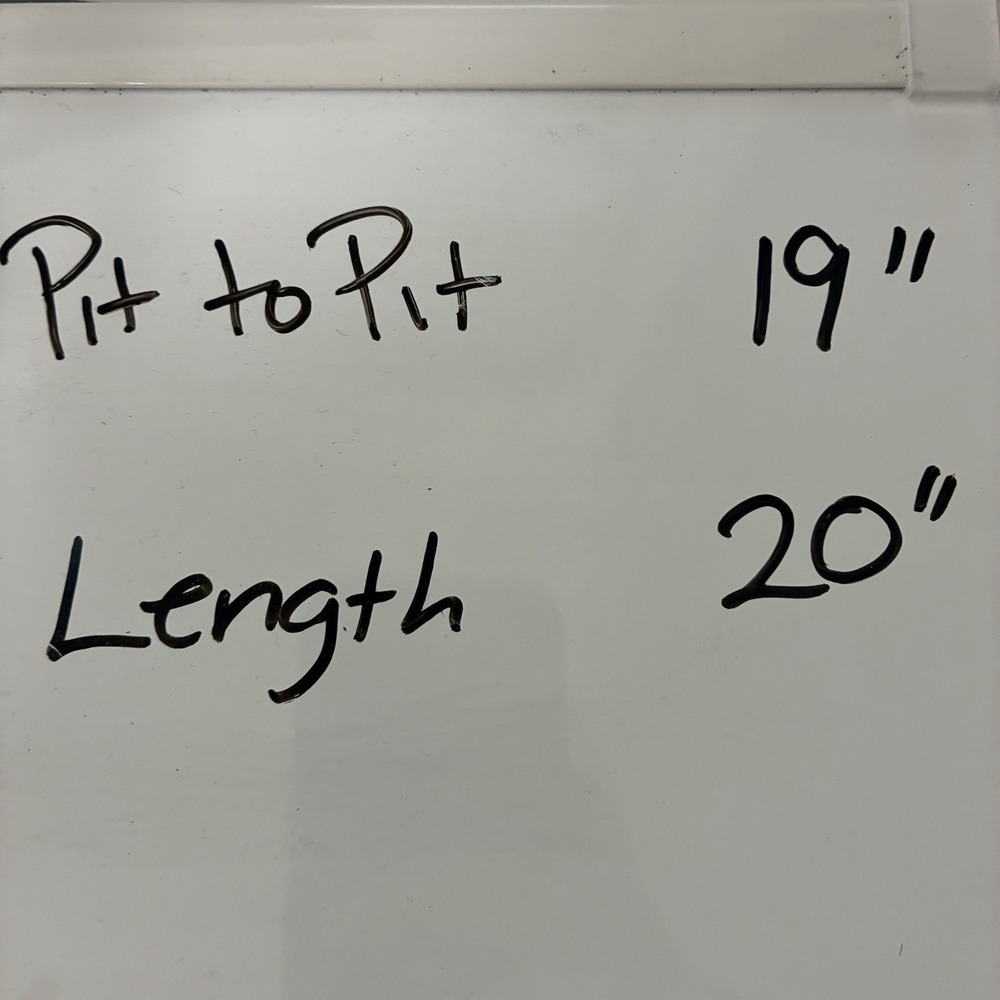 Pit to Pit 19"
Length 20"